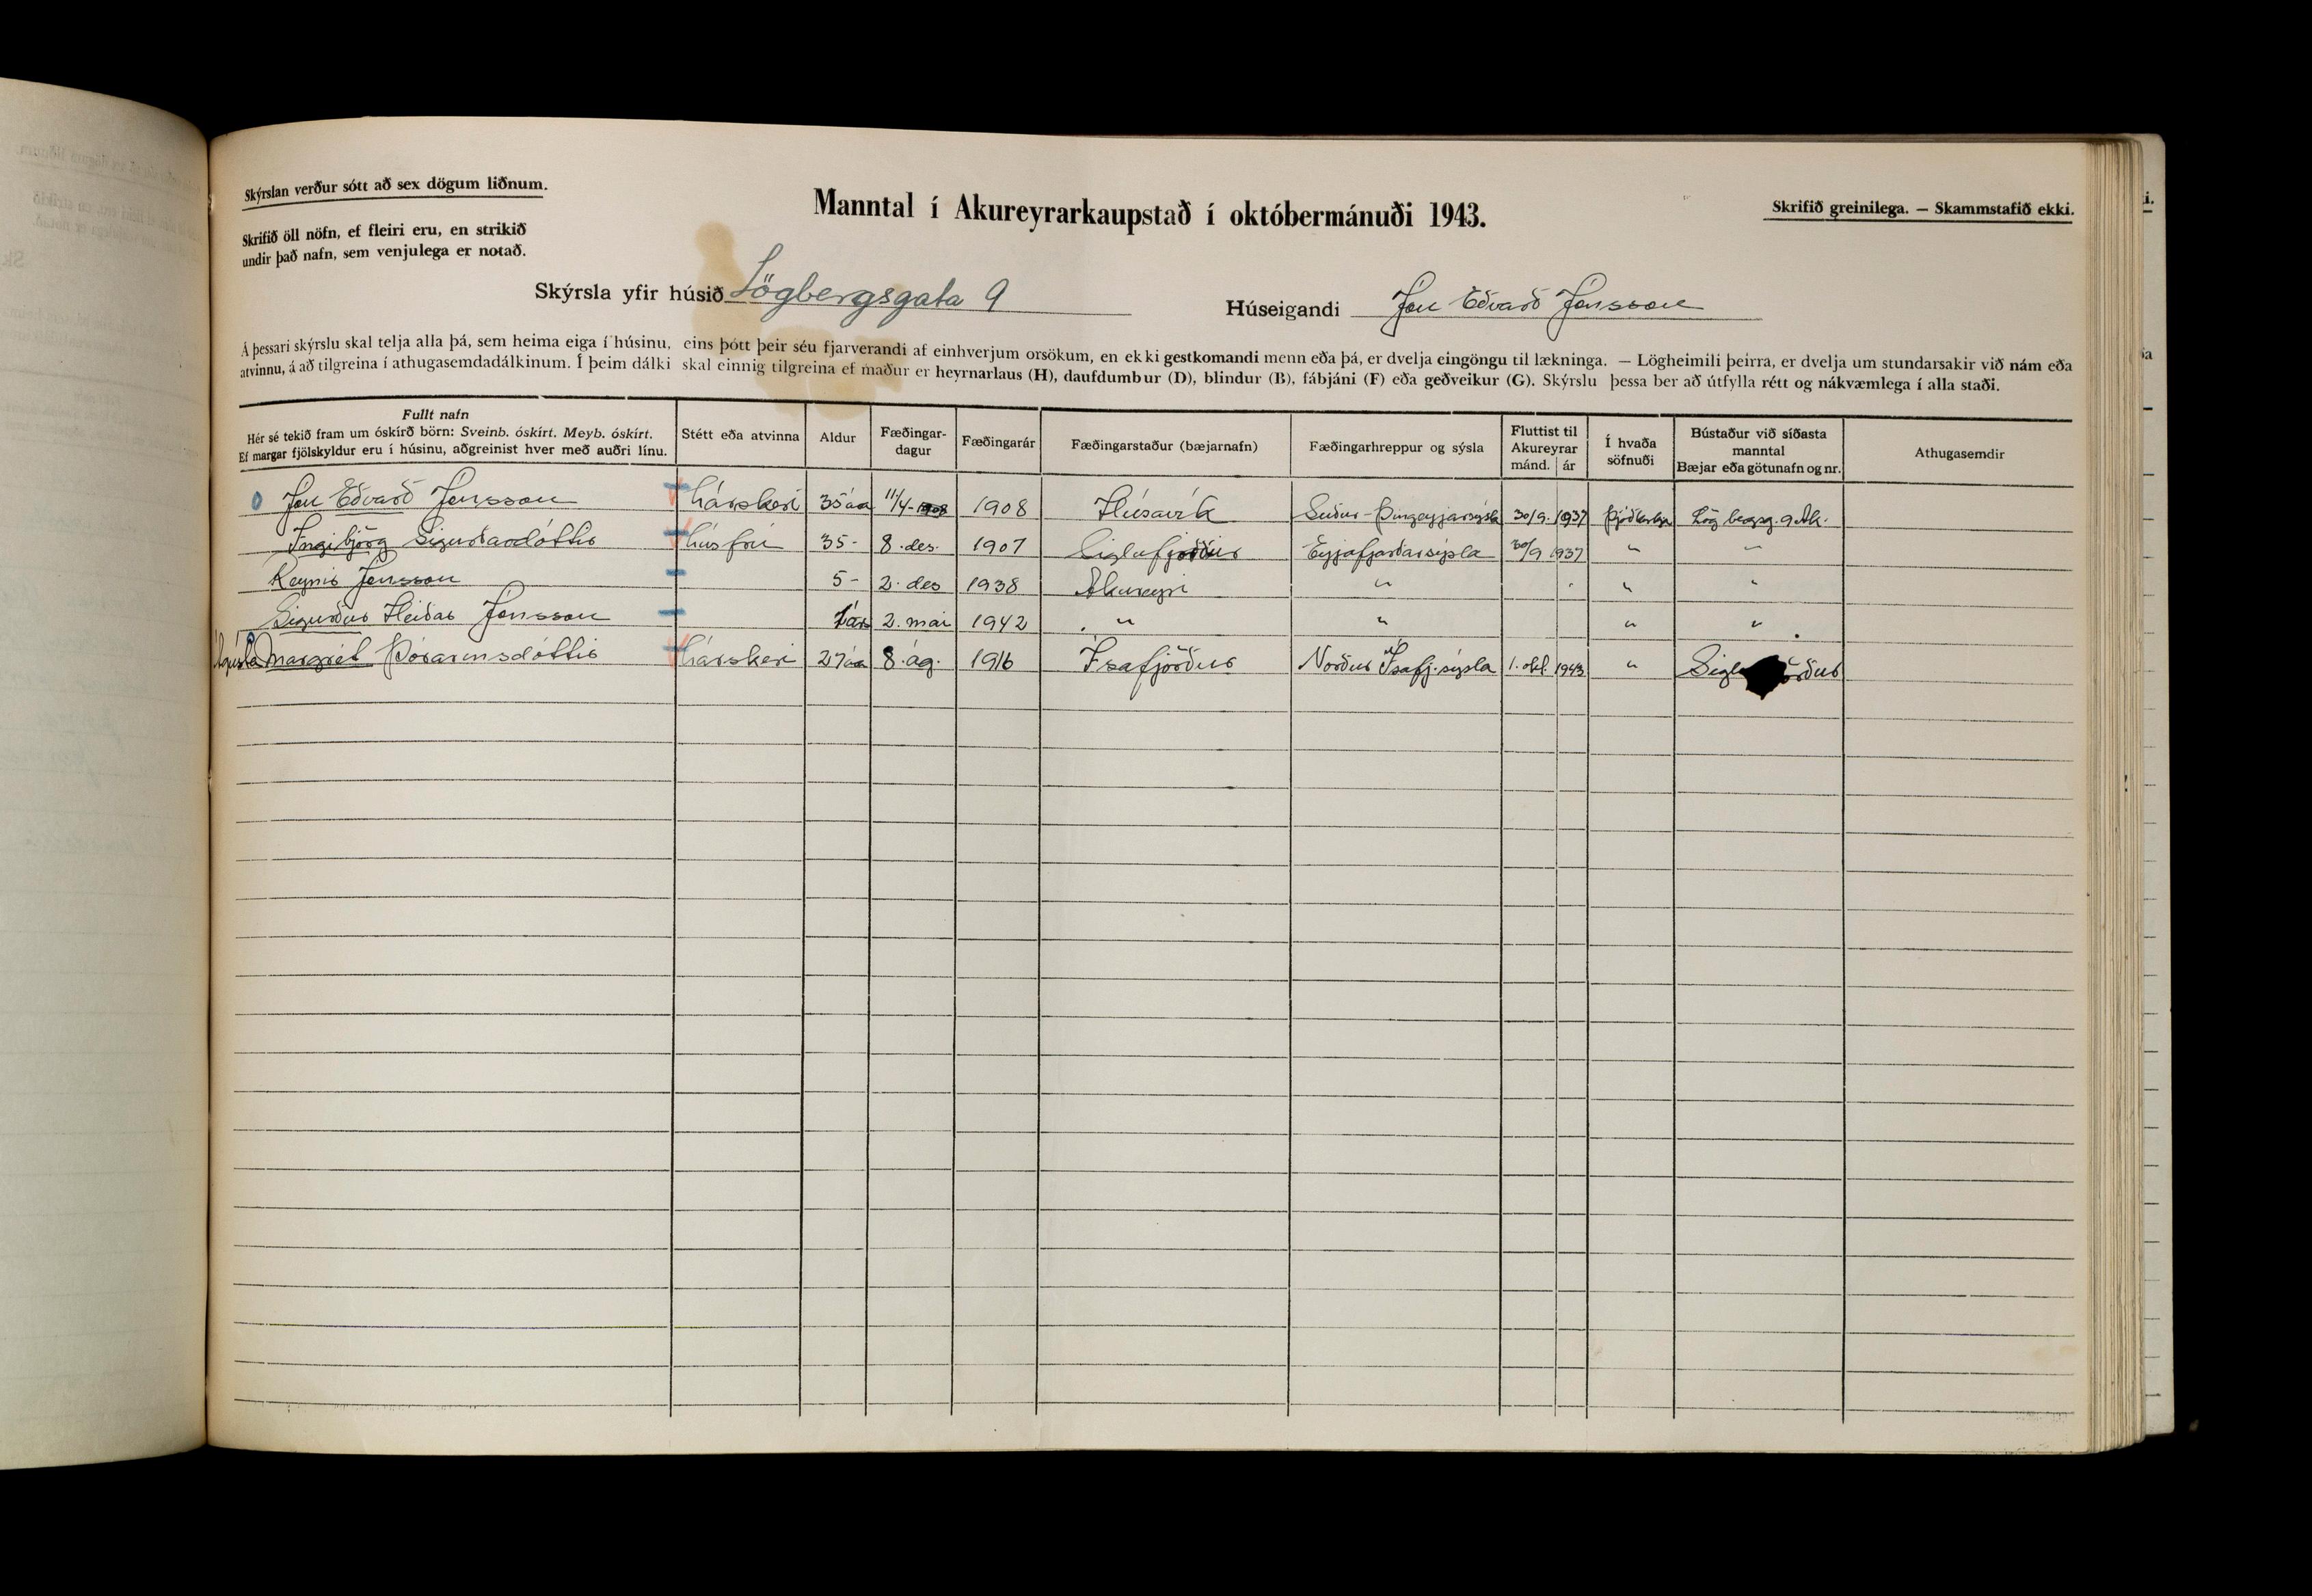 Skýrslan verður sótt að sex dögum liðnum.
Skrifið öll nöfn, ef fleiri eru, en strikið
undir það nafn, sem venjulega er notað.
Manntal í Akureyrarkaupstað í októbermánuði 1943.
Skrifið greinilega. — Skammstafið ekki.
Skýrsla yfir húsið Lögbergsgata 9 Húseigandi Jón Eðvarð Jónsson
Á þessari skýrslu skal telja alla þá, sem heima eiga í húsinu, eins þótt þeir séu fjarverandi af einhverjum orsökum, en ekki gestkomandi menn eða þá, er dvelja eingöngu til lækninga. — Lögheimili þeirra, er dvelja um stundarsakir við nám eða
atvinnu, á að tilgreina í athugasemdadálkinum. Í þeim dálki skal einnig tilgreina ef maður er heyrnarlaus (H), daufdumbur (D), blindur (B), fábjáni (F) eða geðveikur (G). Skýrslu þessa ber að útfylla rétt og nákvæmlega í alla staði.
Fullt nafn
Hér sé tekið fram um óskírð börn: Sveinb. óskírt. Meyb. óskírt.
Ef margar fjölskyldur eru í húsinu, aðgreinist hver með auðri línu.
Stétt eða atvinna
Aldur
Fæðingar-
dagur
Fæðingarár
Fæðingarstaður (bæjarnafn)
Fæðingarhreppur og sýsla
Fluttist til
Akureyrar
mánd. ár
Í hvaða
söfnuði
Bústaður við síðasta
manntal
Bæjar eða götunafn og nr.
Athugasemdir
Jón Eðvarð Jónsson hárskeri 35 ára 11/4- 1908 1908 Húsavík Suður-Þingeyjarsýsla 30/9. 1937 Lögbergsg. 9 Ak.
Ingibjörg Sigurðardóttir húsfrú 35- 8. des. 1907 Siglufjörður Eyjafjarðarsýsla 30/9 1937 " "
Reynir Jónsson 5- 2. des 1938 Akureyri " " "
Sigurður Heiðar Jónsson 1 árs 2. mai 1942 " " " "
Ágústa Margrét Þórarinsdóttir hárskeri 27 ára 8. ág. 1916 Ísafjörður Norður Ísafj.sýsla 1. okt. 1943 " Siglufjörður